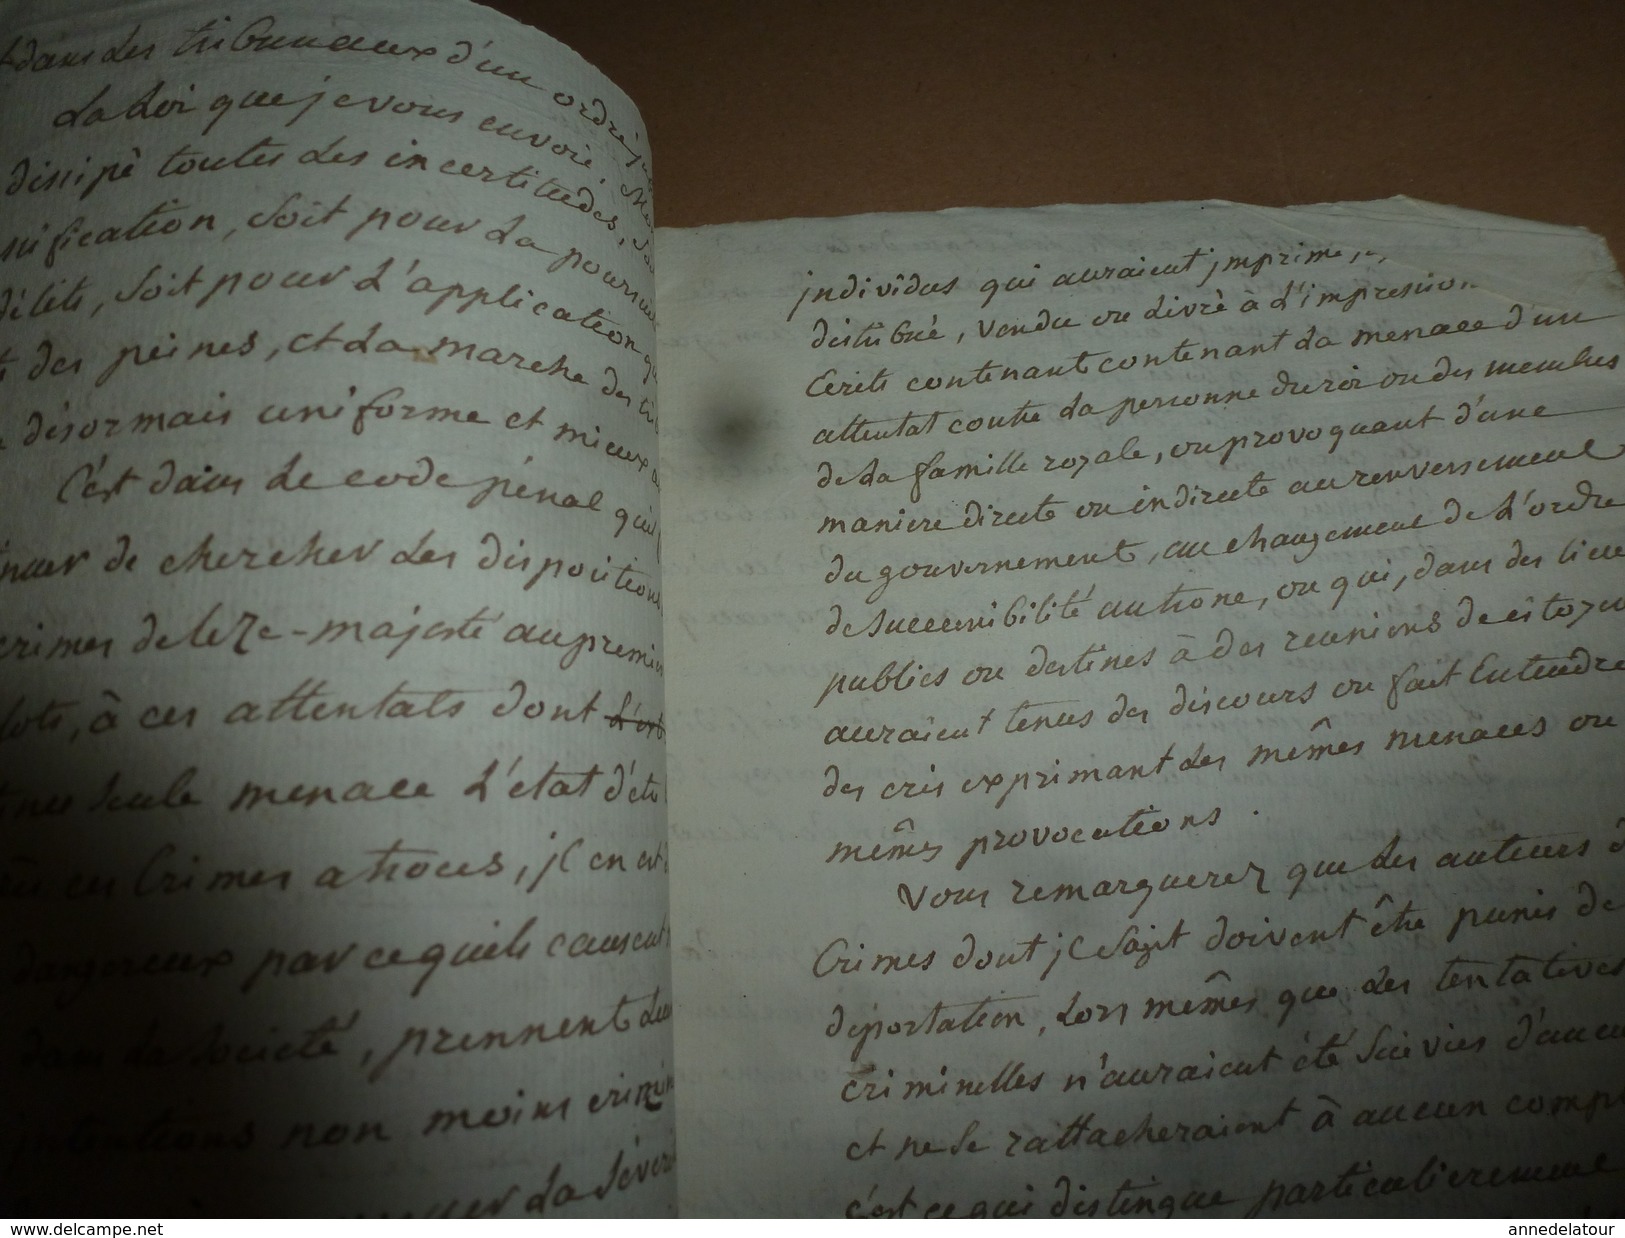 dans les tribunaux d'un ordre
La Loi que je vous envoie,
dissipé toutes les incertitudes,
nification, soit pour la poursuite
délits, soit pour l'application
des peines, et la marche des
désormais uniforme et mieux
C'est dans le code pénal qu'il
nuer de chercher les dispositions
crimes de leze-majesté au premier
lots, à ces attentats dont
seule menace l'état d'
ces Crimes atroces, il en est
dangereux par ce qu'ils causent
dans la Société, prennent
intentions non moins
la
individus qui auraient imprimé,
distribué, vendu ou livré à l'impression
Ecrits contenant contenant la menace d'un
attentat contre la personne du roi ou des membres
de la famille royale, ou provoquant d'une
maniere directe ou indirecte au renversement
du gouvernement, au changement de l'ordre
de successibilité au trone, ou qui, dans des lieux
publics ou destinés à des reunions de citoyens
auraient tenus des discours ou fait Entendre
des cris exprimant les mêmes menaces ou
mêmes provocations.
Vous remarquerez que les auteurs
Crimes dont il s'agit doivent être punis de
déportation, lors mêmes que les tentatives
criminelles n'auraient été suivies d'aucun
et ne se rattacheraient à aucun
c'est ce qui distingue particulierement
www.delcampe.net
annedelatour